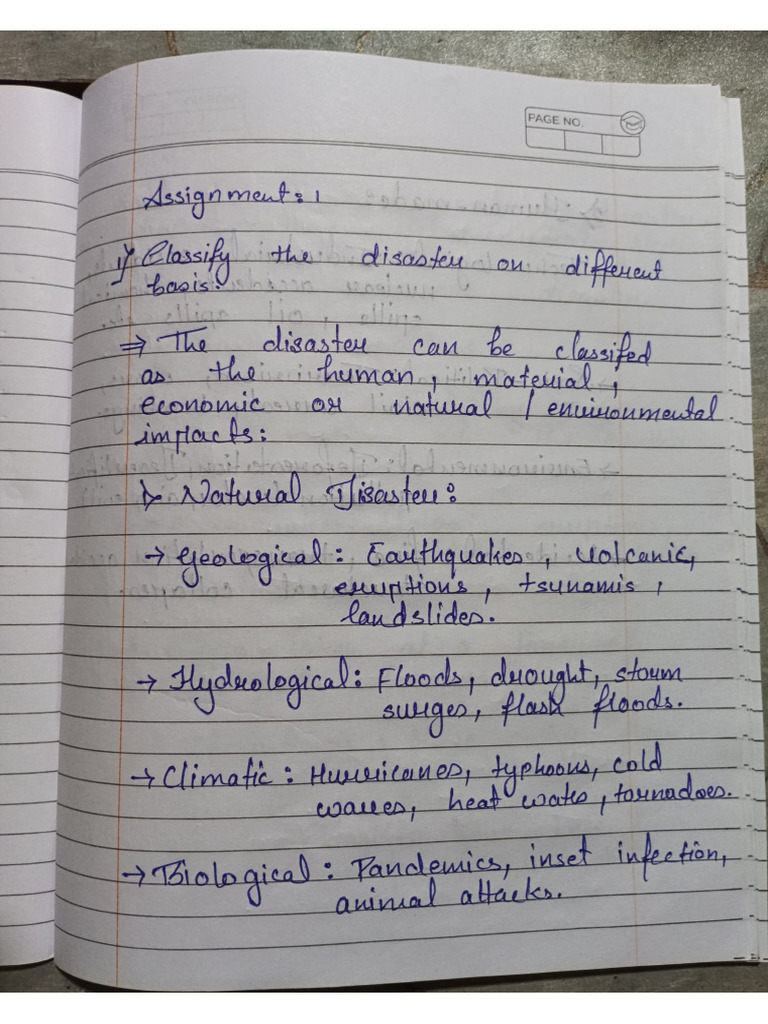 PAGE NO.
Assignment: 1
1) Classify the disaster on different
basis:
⇒ The disaster can be classifed
as the human, material,
economic or natural / environmental
impacts:
Natural Disaster:
→ Geological: Earthquakes, volcanic,
eruptions, tsunamis,
landslides.
→ Hydrological: Floods, drought, storm
surges, flash floods.
→ Climatic: Hurricanes, typhoons, cold
waves, heat wates, tornadoes.
→ Biological: Pandemics, inset infection,
animal attacks.